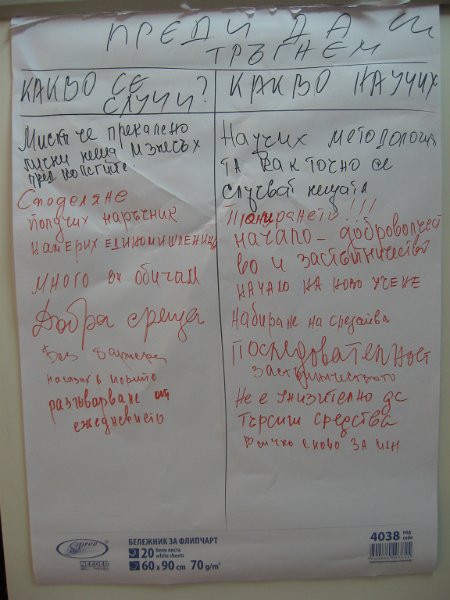 ПРЕДИ ДА СИ
ТРЪГНЕМ
КАКВО СЕ
СЛУЧИ?
КАКВО НАУЧИХ
Мисля че прекалено
лични неща изнесох
пред колегите.
Споделяне
получих наръчник
НАМЕРИХ ЕДИНОМИШЛЕНИЦИ
МНОГО ВИ ОБИЧАМ
Добра среща
Без
разтоварване от
ежедневието
Научих методология
ТА как точно се
случват нещата
Планирането!!!
начало - доброволчест
во и застъпничество
НАЧАЛО НА НОВО УЧЕНЕ
Набиране на средства
Последователност
застъпничеството
Не е унизително да
търсиш средства
Всичко е ново ЗА МЕН
Spree
NEEDED
БЕЛЕЖНИК ЗА ФЛИПЧАРТ
20 бели листа
white sheets
60 x 90 cm 70 g/m²
4038 код
code